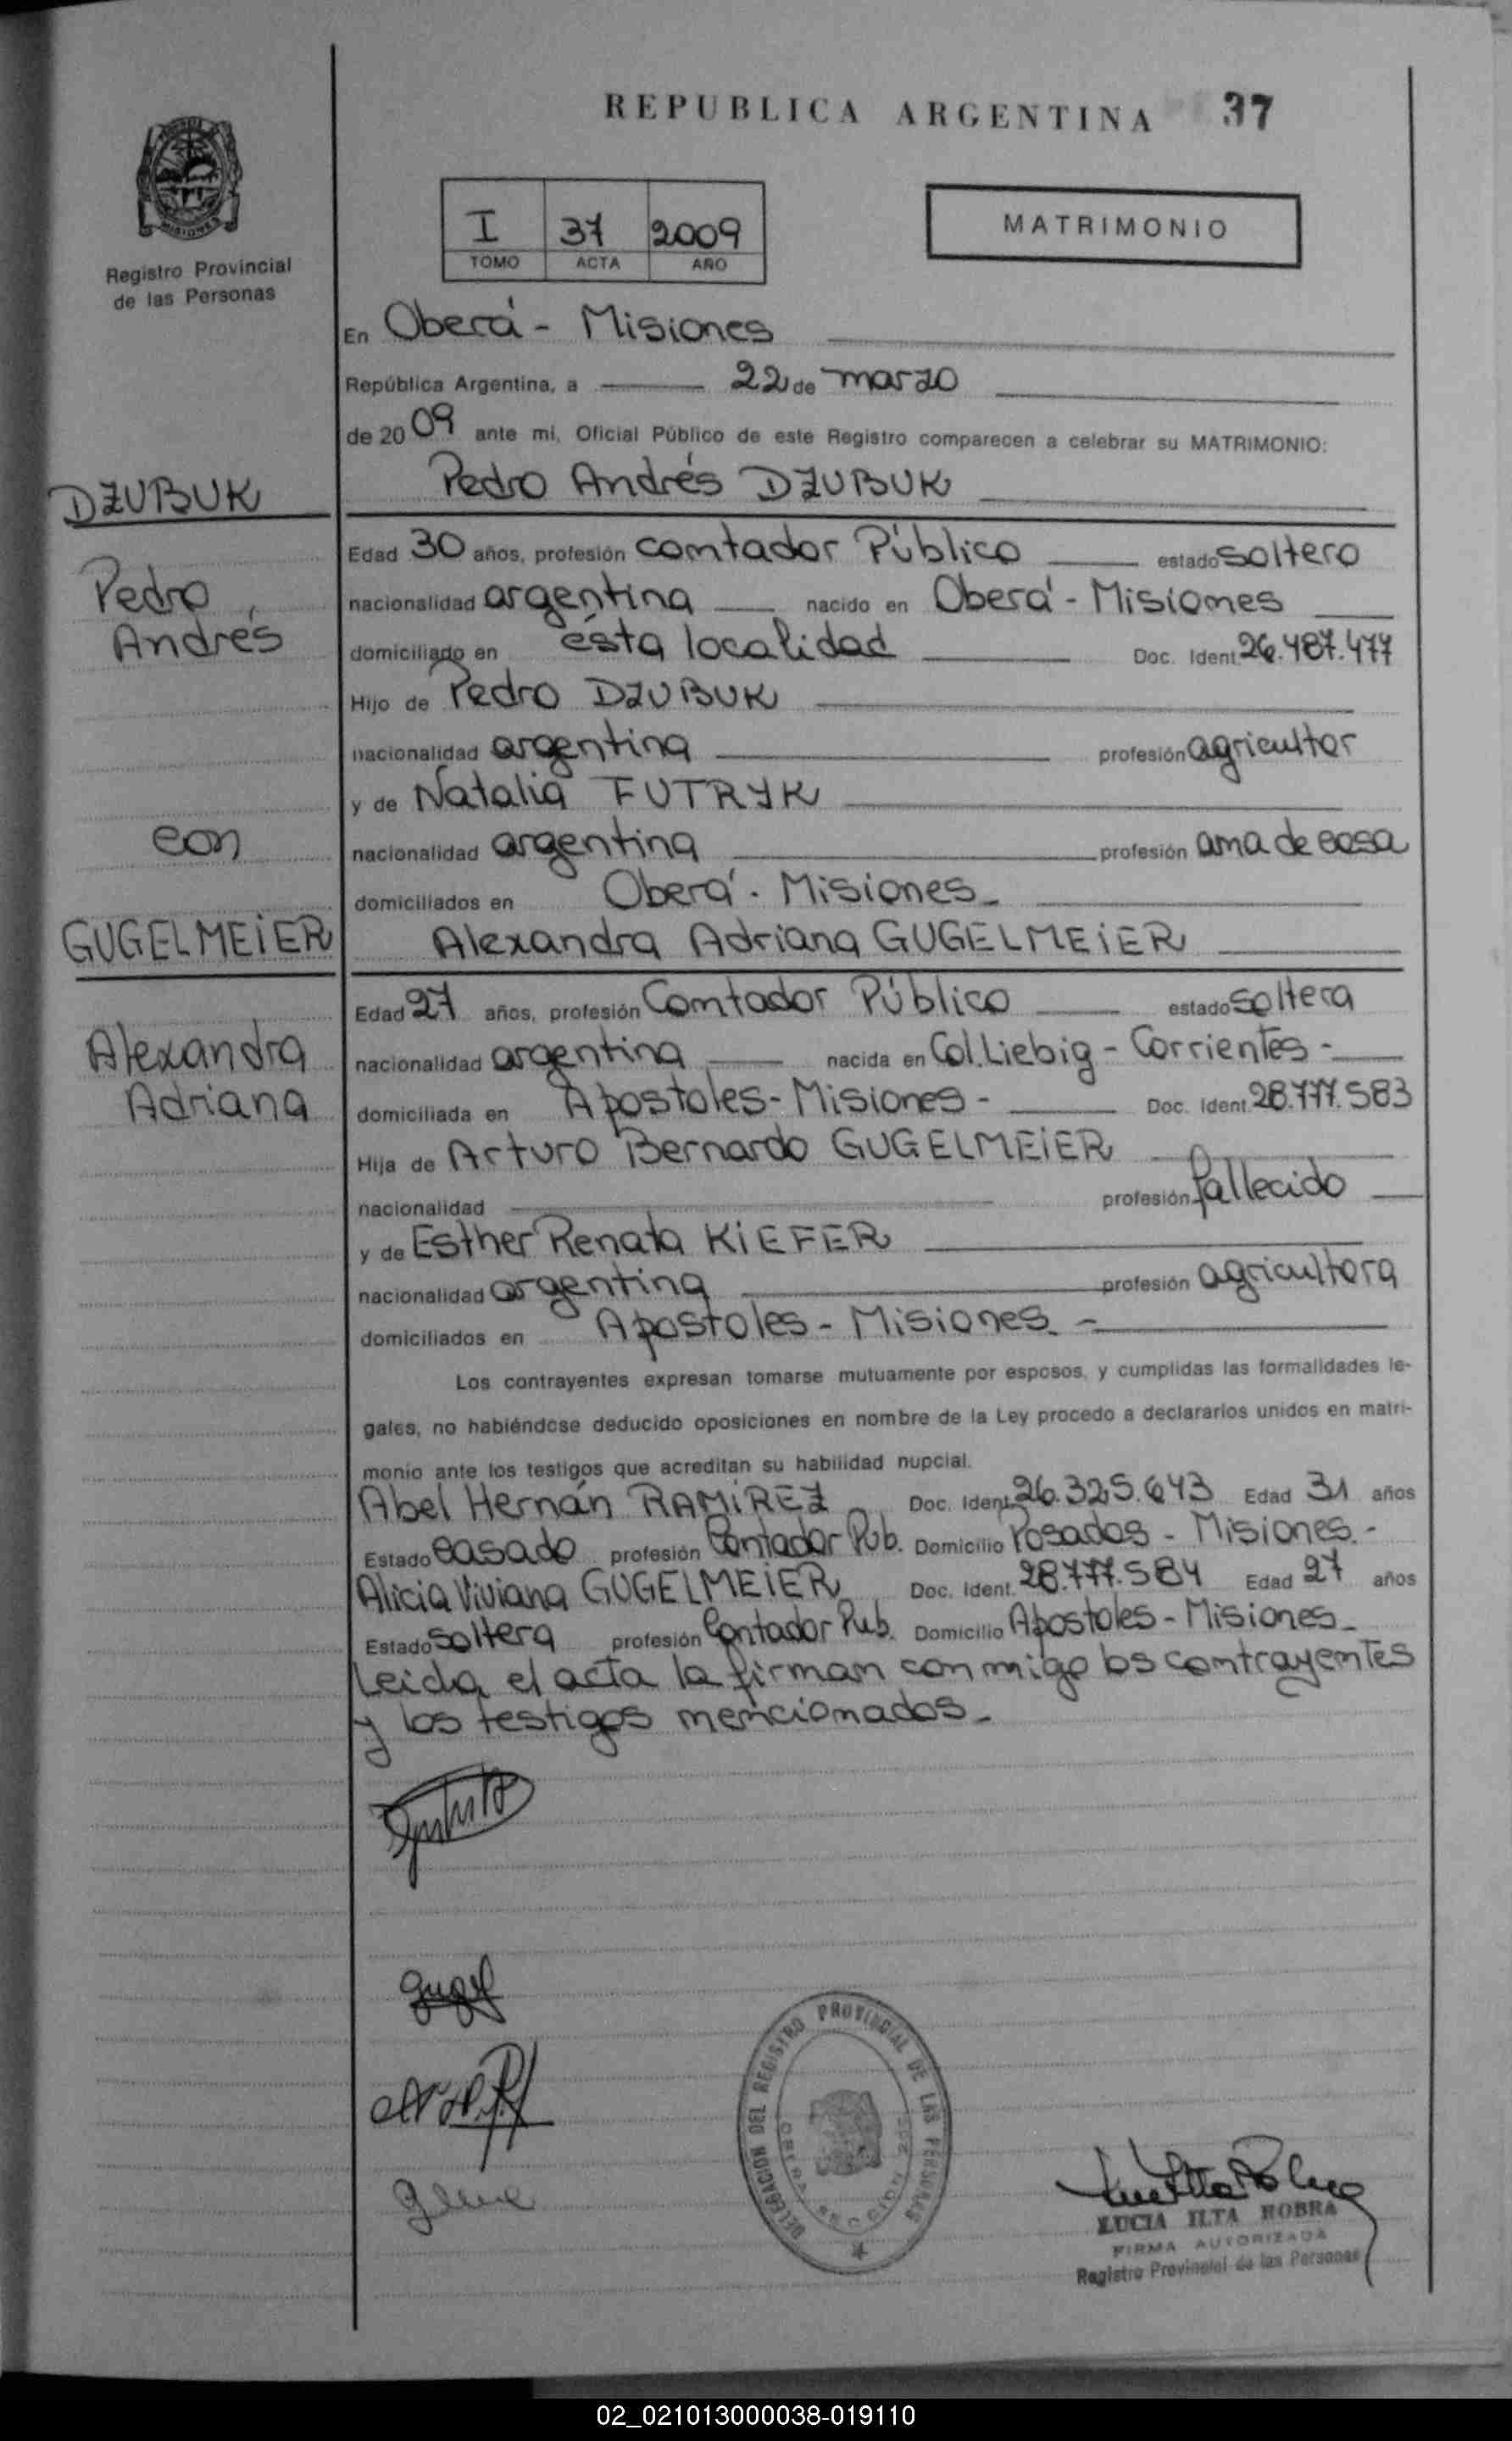 REPUBLICA ARGENTINA 37
MISIONES
Registro Provincial
de las Personas
I 37 2009
TOMO ACTA AÑO
MATRIMONIO
En Oberá - Misiones
República Argentina, a 22 de marzo
de 2009 ante mi, Oficial Público de este Registro comparecen a celebrar su MATRIMONIO:
DZUBUK
Pedro Andrés DZUBUK
Pedro
Andrés
Edad 30 años, profesión contador Público estado soltero
nacionalidad argentina nacido en Oberá - Misiones
domiciliado en ésta localidad Doc. Ident. 26.487.477
Hijo de Pedro DZUBUK
nacionalidad argentina profesión agricultor
y de Natalia FUTRYK
con
nacionalidad argentina profesión ama de casa
domiciliados en Oberá - Misiones
GUGELMEiER
Alexandra Adriana GUGELMEiER
Alexandra
Adriana
Edad 27 años, profesión Contador Público estado soltera
nacionalidad argentina nacida en Col. Liebig - Corrientes -
domiciliada en Apostoles - Misiones - Doc. Ident. 28.777.583
Hija de Arturo Bernardo GUGELMEiER
nacionalidad profesión fallecido
y de Esther Renata KiEFER
nacionalidad argentina profesión agricultora
domiciliados en Apostoles - Misiones. -
Los contrayentes expresan tomarse mutuamente por esposos, y cumplidas las formalidades le-
gales, no habiéndose deducido oposiciones en nombre de la Ley procedo a declararlos unidos en matri-
monio ante los testigos que acreditan su habilidad nupcial.
Abel Hernán RAMiREZ Doc. Ident. 26.325.643 Edad 31 años
Estado casado profesión Contador Pub. Domicilio Posadas - Misiones. -
Alicia Viviana GUGELMEiER Doc. Ident. 28.777.584 Edad 27 años
Estado soltera profesión Contador Pub. Domicilio Apostoles - Misiones -
Leida el acta la firman conmigo los contrayentes
y los testigos mencionados -
DELEGACION DEL REGISTRO PROVINCIAL DE LAS PERSONAS
LUCIA ILTA ROBRA
FIRMA AUTORIZADA
Registro Provincial de las Personas
02_021013000038-019110